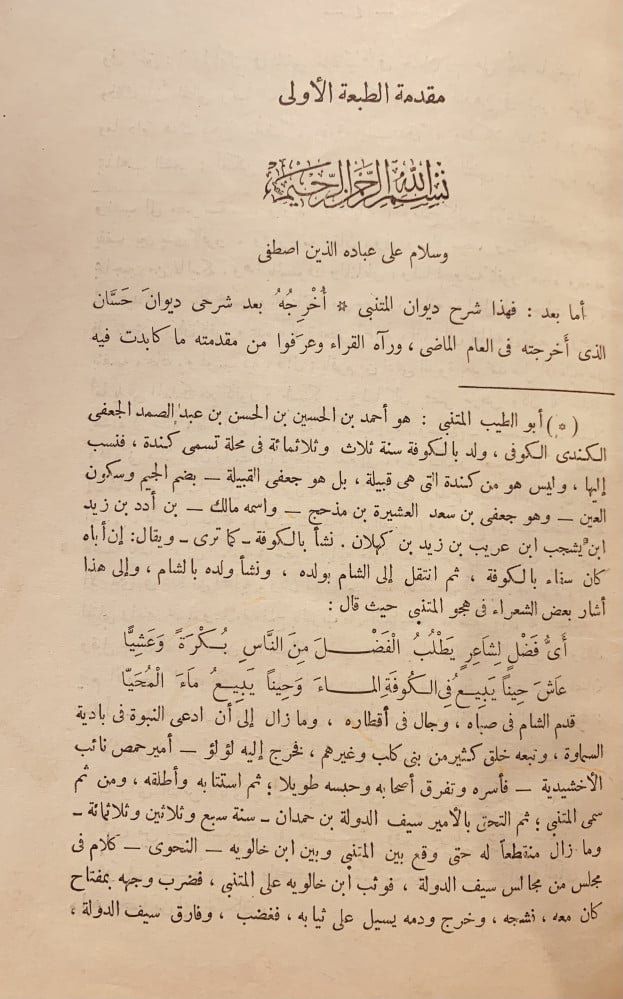 مقدمة الطبعة الأولى
بسم الله الرحمن الرحيم
وسلام على عباده الذين اصطفى
أما بعد : فهذا شرح ديوان المتنبى * أُخْرِجُهُ بعد شرحى ديوانَ حَسَّان
الذى أَخرجته فى العام الماضى ، ورآه القراء وعرَفوا من مقدمته ما كابدت فيه
(*) أبو الطيب المتنبى : هو أحمد بن الحسين بن الحسن بن عبد الصمد الجعفى
الكندى الكوفى ، ولد بالكوفة سنة ثلاث وثلاثمائة فى محلة تسمى كندة ، فنسب
إليها ، وليس هو من كندة التى هى قبيلة ، بل هو جعفى القبيلة — بضم الجيم وسكون
العين — وهو جعفى بن سعد العشيرة بن مذحج — واسمه مالك — بن أدد بن زيد
ابن يشجب ابن عريب بن زيد بن كهلان . نشأ بالكوفة — كما ترى — ويقال : إن أباه
كان سقاء بالكوفة ، ثم انتقل إلى الشام بولده ، ونشأ ولده بالشام ، وإلى هذا
أشار بعض الشعراء فى هجو المتنبى حيث قال :
أَىُّ فَضْلٍ لِشَاعِرٍ يَطْلُبُ الْفَضْلَ مِنَ النَّاسِ بُكْرَةً وَعَشِيًّا
عَاشَ حِيناً يَبِيعُ فِى الكُوفَةِ المَاءَ وَحِيناً يَبِيعُ مَاءَ الْمُحَيَّا
قدم الشام فى صباه ، وجال فى أقطاره ، وما زال إلى أن ادعى النبوة فى بادية
السماوة ، وتبعه خلق كثير من بنى كلب وغيرهم ، فخرج إليه لؤلؤ — أمير حمص نائب
الأخشيدية — فأسره وتفرق أصحابه وحبسه طويلا ؛ ثم استتابه وأطلقه ، ومن ثم
سمى المتنبى ؛ ثم التحق بالأمير سيف الدولة بن حمدان — سنة سبع وثلاثين وثلاثمائة —
وما زال منقطعاً له حتى وقع بين المتنبى وبين ابن خالويه — النحوى — كلام فى
مجلس من مجالس سيف الدولة ، فوثب ابن خالويه على المتنبى ، فضرب وجهه بمفتاح
كان معه ، فشجه ، وخرج ودمه يسيل على ثيابه ، فغضب ، وفارق سيف الدولة ،